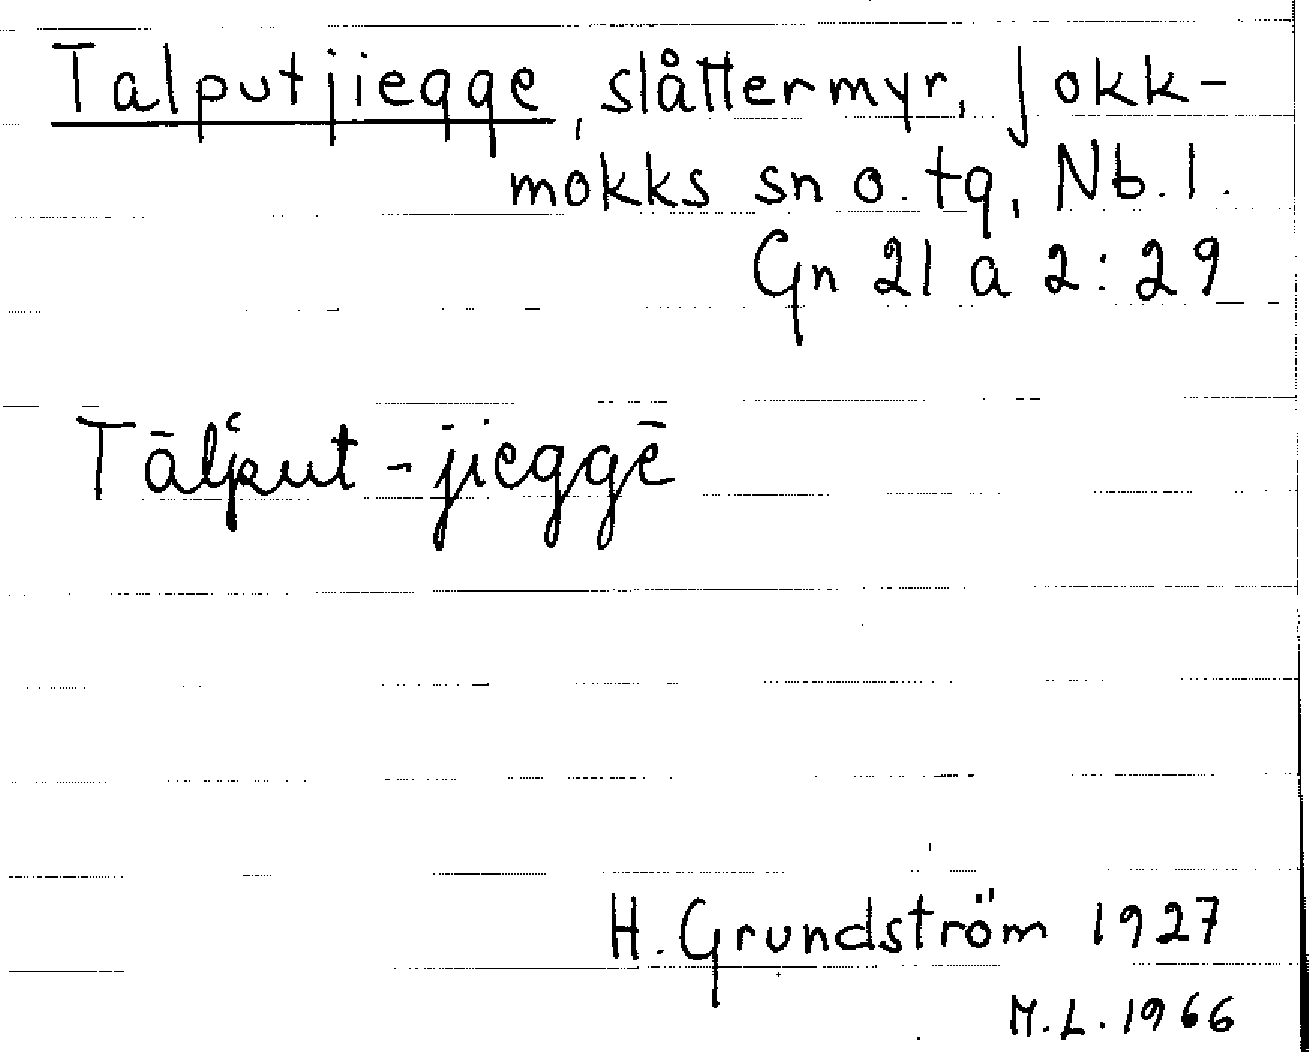 Talputjiegge, slåttermyr, Jokk-
mokks sn o. tg, Nb. l.
Gn 21 a 2:29
Tāl̨ʿput-jieggē
H. Grundström 1927
M.L. 1966